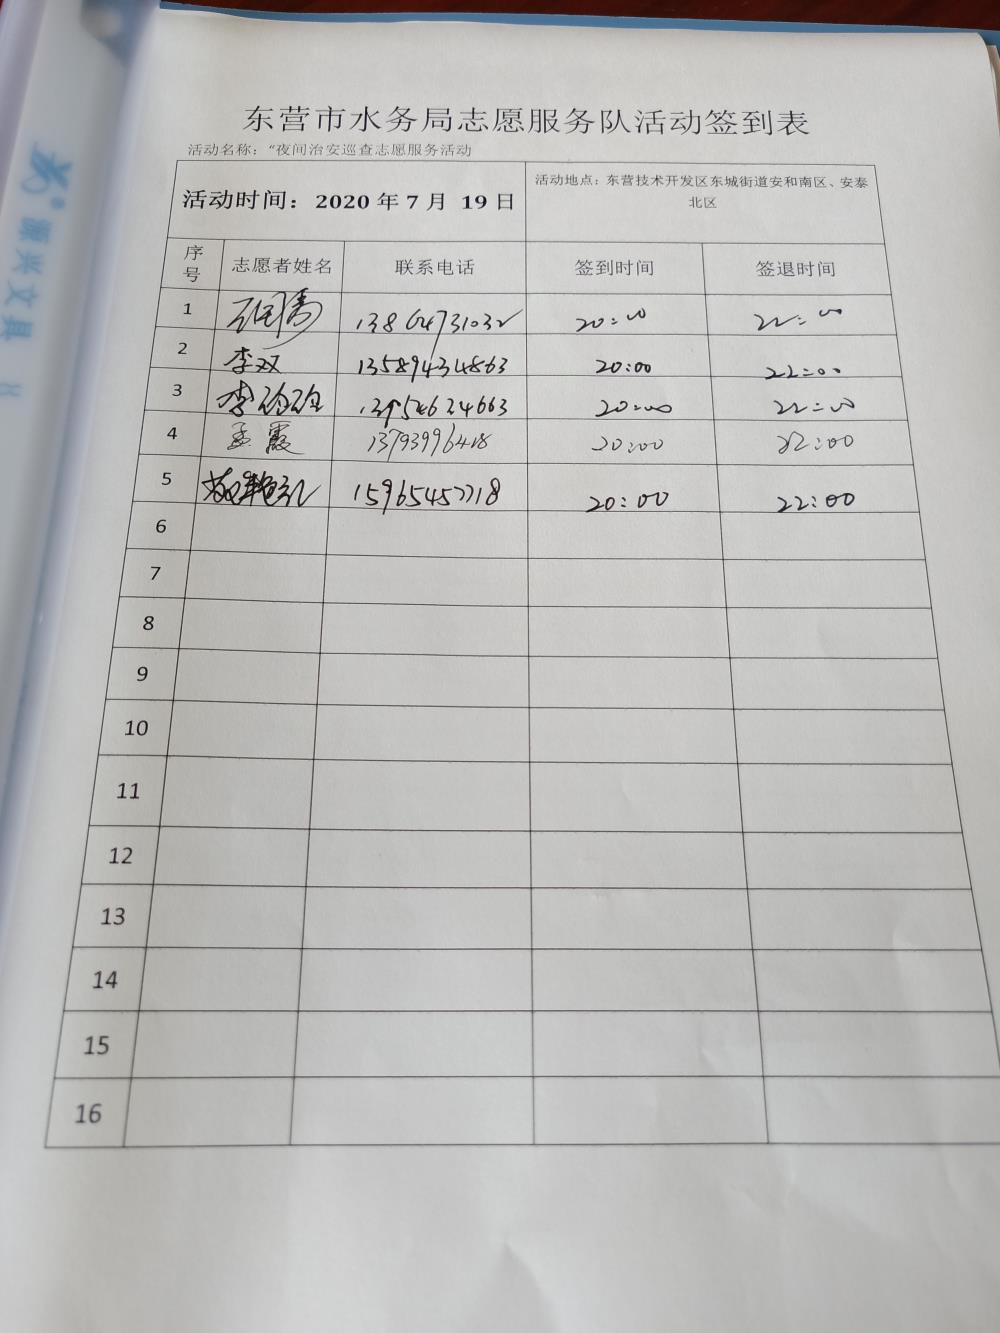 东营市水务局志愿服务队活动签到表
活动名称："夜间治安巡查志愿服务活动
活动时间：2020 年 7 月 19 日
活动地点：东营技术开发区东城街道安和南区、安泰
北区
序号 志愿者姓名 联系电话 签到时间 签退时间
1 13864731032 20:00 22:00
2 李双 13589434863 20:00 22:00
3 李 13954624663 20:00 22:00
4 孟霞 13793996418 20:00 22:00
5 15965457718 20:00 22:00
6
7
8
9
10
11
12
13
14
15
16
源兴文具